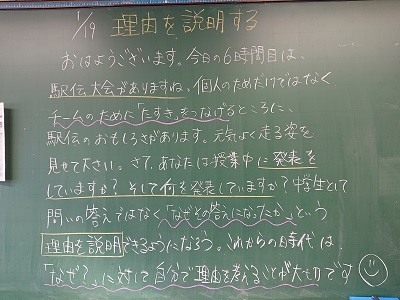 1/19 理由を説明する
おはようございます。今日の6時間目は、
駅伝大会がありますね。個人のためだけではなく
チームのために「たすき」をつなげるところに、
駅伝のおもしろさがあります。元気よく走る姿を
見せて下さい。さて、あなたは授業中に発表を
していますか?そして何を発表していますか?中学生として
問いの答えではなく「なぜその答えになったか」という
理由を説明できるようになろう。これからの時代は、
「なぜ?」に対して自分で理由を考えることが大切です